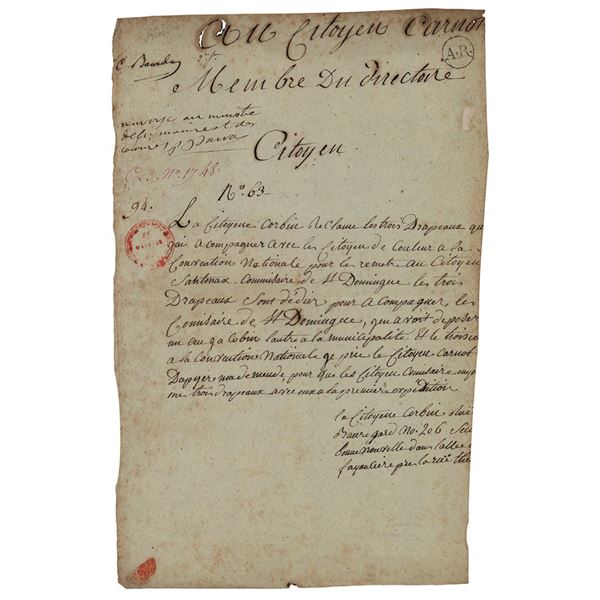 Au Citoyen Carnot
A.R.
Membre Du directoire
renvoyé au ministre
de la marine et des
Citoyen
No. 1748.
No. 63
94.
La Citoyene Corbin Reclame les trois Drapeaux qu
jai a compagner avec les Citoyen de Couleur a la
Convention Nationale pour le remetre au Citoyen
Santonax Commisaire de St Domingue les trois
Drapeaux Sont dédier pour a Compagner les
Comisaire de St Domingue, qu avoit deposer
un au lautre a la municipalité et le troisie
a la Convention Nationale je prie le Citoyen Carnot
Dapyer ma demende, pour que les Citoyen Comisaire
me trois drapeaux avec eux a la premiere expedition
la Citoyene Corbin
Bauregard No. 206
bonne nouvelle dans lallee
pres la rue